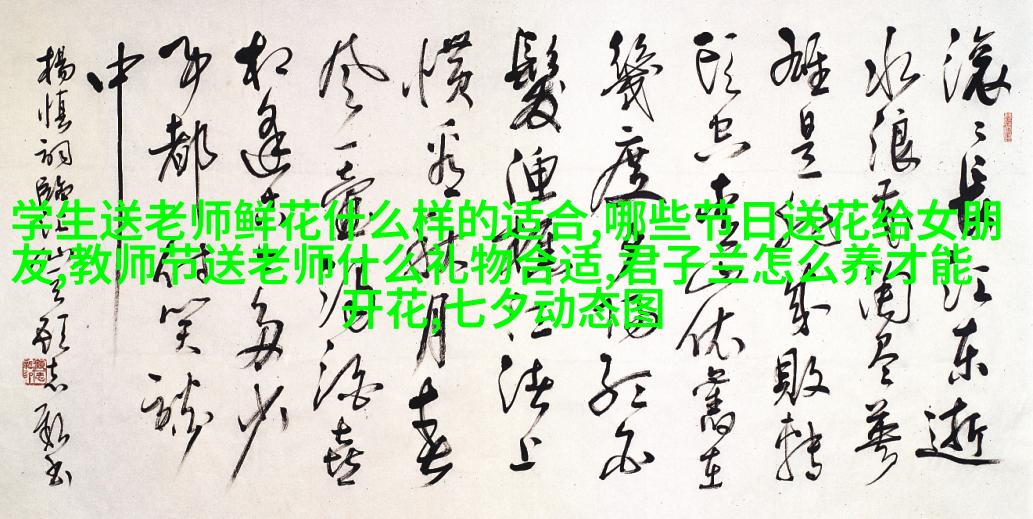 学生送老师鲜花什么样的适合,哪些节日送花给女朋
友,教师节送老师什么礼物合适,君子兰怎么养才能
开花,七夕动态图
滚〻長江東逝
水浪花淘尽英
雄是非成敗轉
頭空青山依舊在
幾度夕陽红白
髮渔樵江渚上
慣看秋月春
风一壶濁酒喜
相逢古今多少
事都付笑談
中
楊慎詞臨江仙